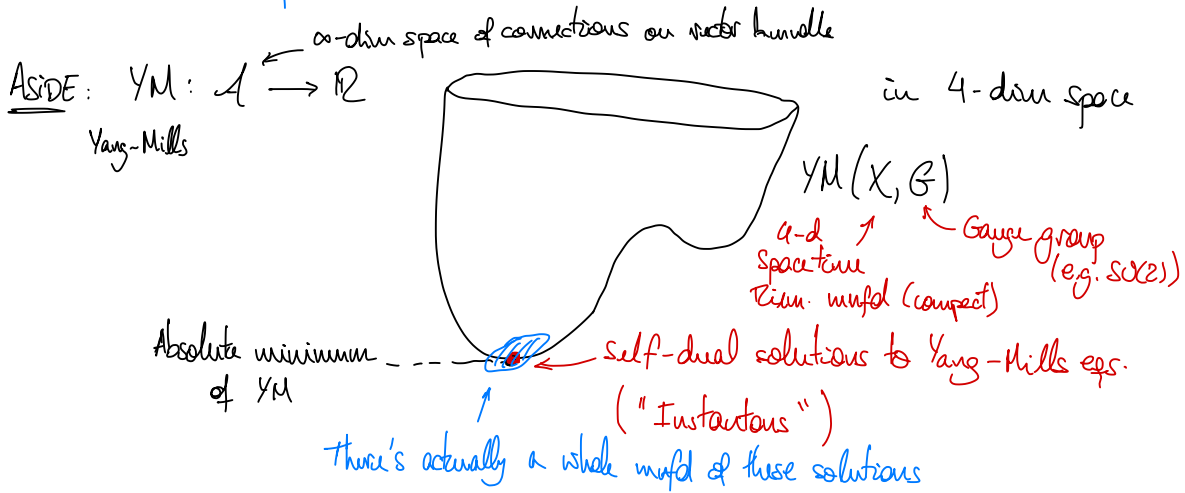 ∞-dim space of connections on vector bundle
ASIDE: YM: A → ℝ
Yang-Mills
in 4-dim space
YM(X, G)
4-d
spacetime
Riem. mnfd (compact)
Gauge group
(e.g. SU(2))
Absolute minimum
of YM
self-dual solutions to Yang-Mills eqs.
("Instantons")
There's actually a whole mnfd of these solutions